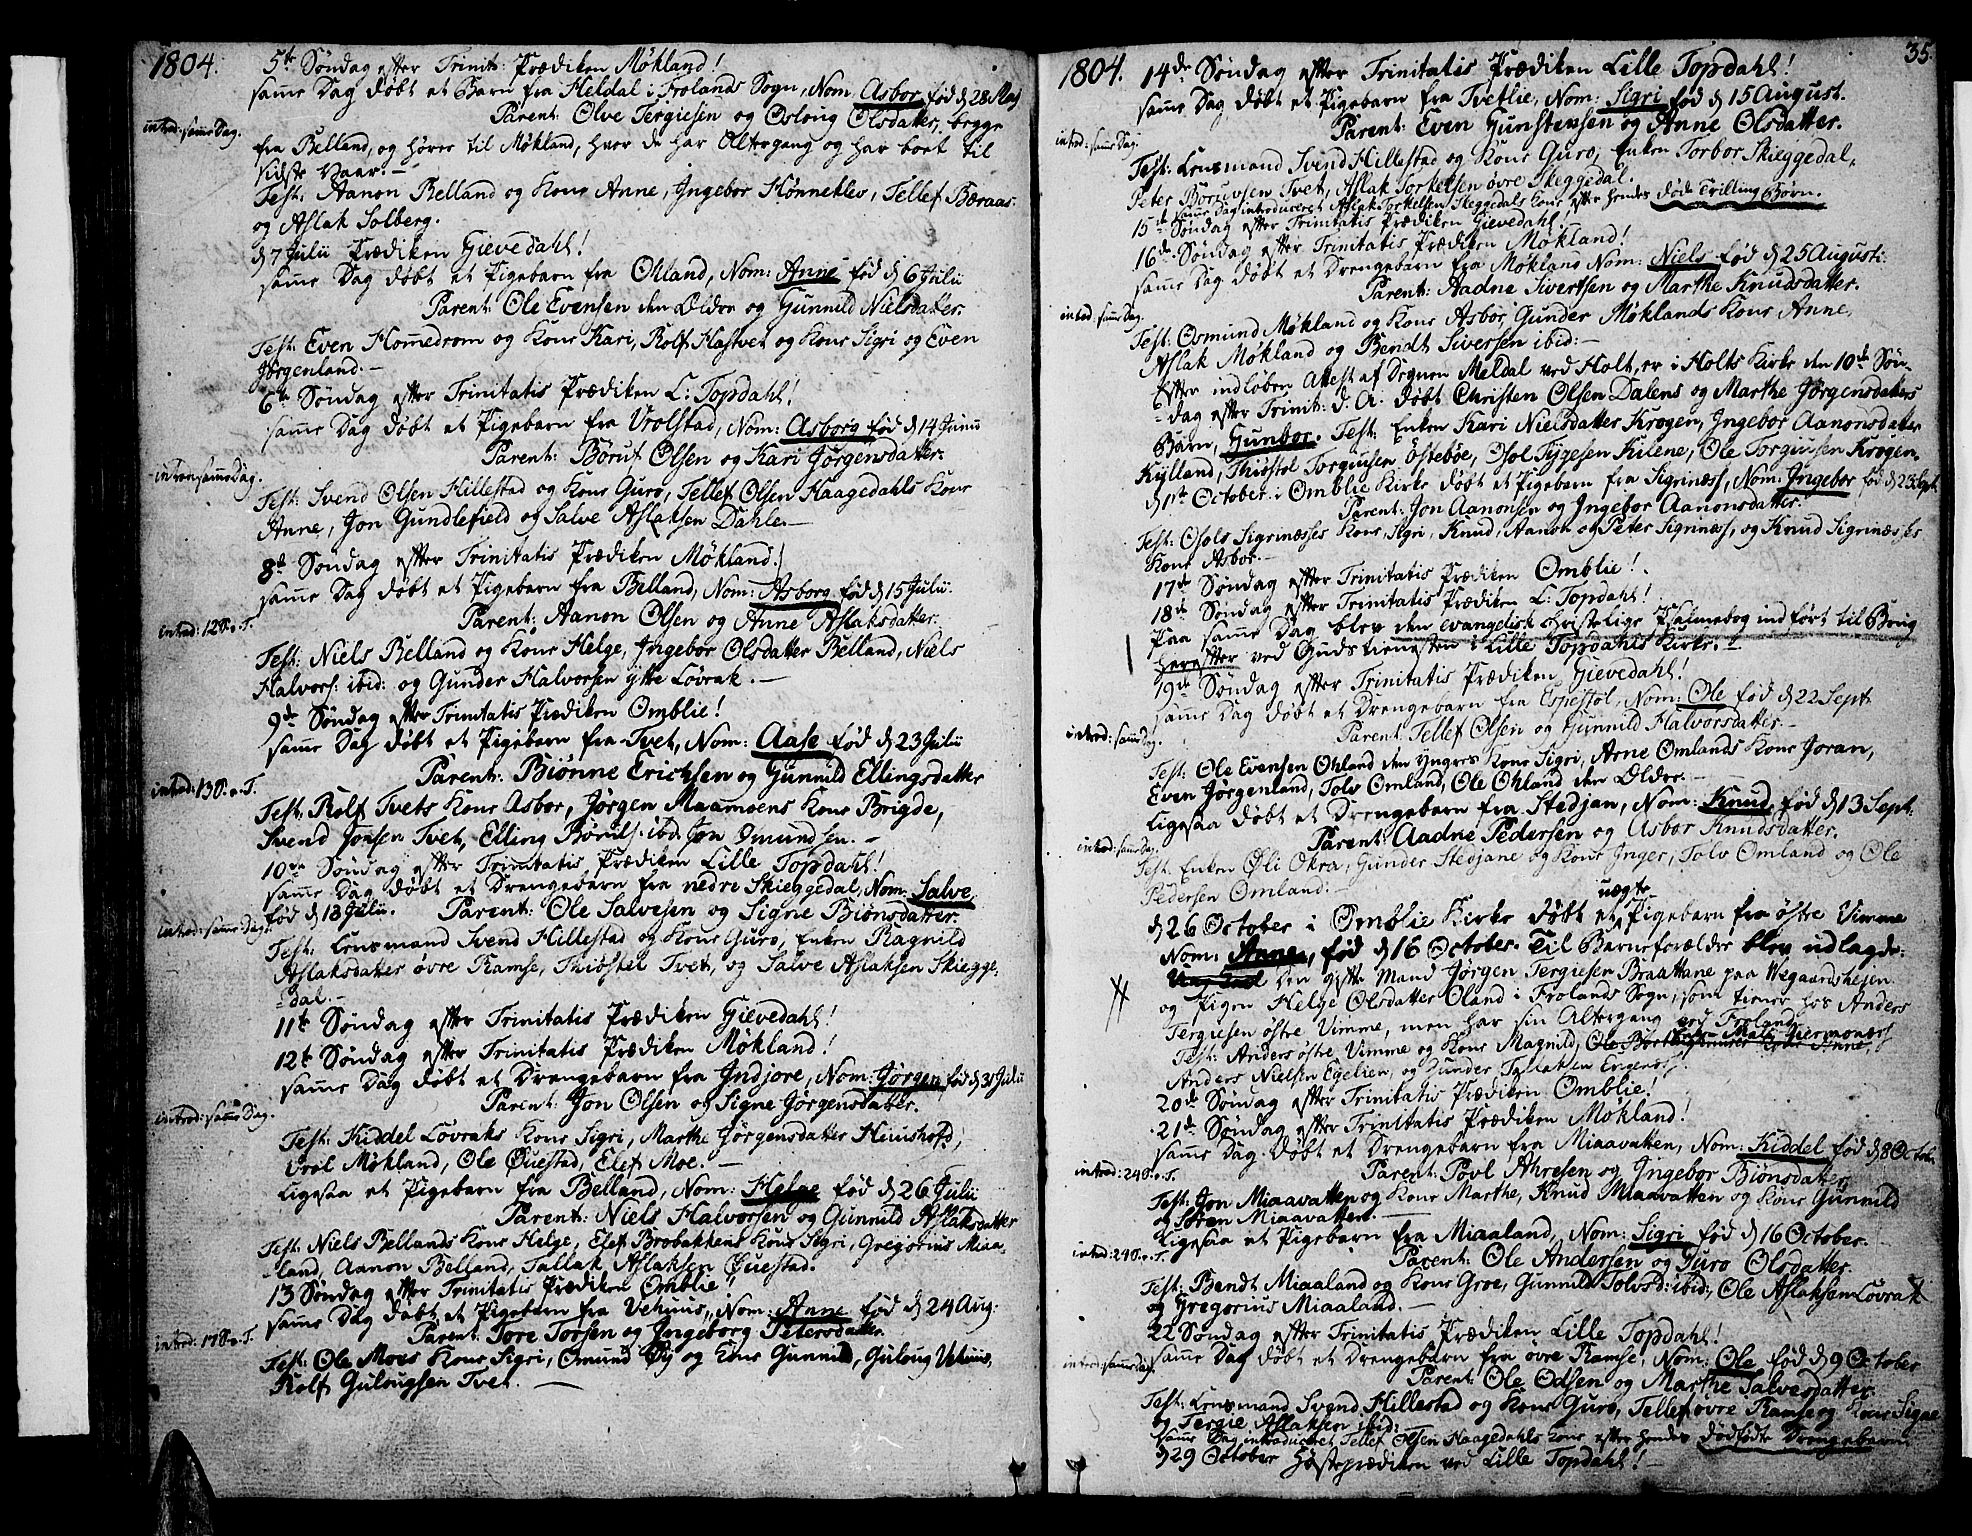 1804.
5te Søndag efter Trinit: Prædiken Møkland!
samme Dag døbt et Barn fra Heldal i Frolands Sogn, Nom: Asbor fød d 28 Maj
introd: samme Dag.
Parent: Olve Tergiesen og Osloug Olsdatter, begge
fra Belland, og hører til Møkland, hvor de har Altergang og har boet til
sidste Vaar. —
Test: Aanon Belland og Kone Anne, Ingebor Hønneklev, Tellef Beraas
og Aslak Solberg.
d 7 Julii Prædiken Gievedahl!
samme Dag døbt et Pigebarn fra Ohland, Nom: Anne fød d 6 Julii
Parent: Ole Evensen den Eldre og Gunnild Nielsdatter.
Test: Even Hommedrom og Kone Kari, Rolf Hastvet og Kone Sigri og Even
Jørgenland. —
6te Søndag efter Trinitatis Prædiken L: Topdahl!
samme Dag døbt et Pigebarn fra Vrolstad, Nom: Asborg fød d 14 Junii
Parent: Børuf Olsen og Kari Jørgensdatter.
intro: samme Dag.
Test: Svend Olsen Hillestad og Kone Guro, Tellef Olsen Haagedahls Kone
Anne, Jon Gundlefield og Salve Aslaksen Dahle. —
8de Søndag efter Trinitatis Prædiken Møkland!
samme Dag døbt et Pigebarn fra Belland, Nom: Asborg fød d 15 Julii.
introd: 12 S. e. T.
Parent: Aanon Olsen og Anne Aslaksdatter.
Test: Niels Belland og Kone Helge, Ingebor Olsdatter Belland, Niels
Halvors: ibid: og Gunder Halvorsen ytte Løvrak. —
9de Søndag efter Trinitatis Prædiken Omblie!
samme Dag døbt et Pigebarn fra Tvet, Nom: Aase fød d 23 Julii
introd: 13 S. e. T.
Parent: Biønne Erichsen og Gunnild Ellingsdatter
Test: Rolf Tvets Kone Asbor, Jørgen Maamoens Kone Brigde,
Svend Jonsen Tvet, Elling Børuls: ibd: Jon Omundsen. —
10de Søndag efter Trinitatis Prædiken Lille Topdahl!
samme Dag døbt et Drengebarn fra nedre Skieggedal, Nom: Salve,
fød d 18 Julii. Parent: Ole Salvesen og Signe Biønsdatter.
introd: samme Dag.
Test: Lensmand Svend Hillestad og Kone Guro, Enken Ragnild
Aslaksdatter øvre Ramse, Thiøstel Tvet, og Salve Aslaksen Skiegge-
dal. —
11te Søndag efter Trinitatis Prædiken Gievedahl!
12te Søndag efter Trinitatis Prædiken Møkland!
samme Dag døbt et Drengebarn fra Indjore, Nom: Jørgen fød d 31 Julii
Parent: Jon Olsen og Signe Jørgensdatter.
introd: samme Dag.
Test: Kiddel Lovraks Kone Sigri, Marthe Jørgensdatter Huushofd,
Vrol Møkland, Ole Øuestad, Elef Moe. —
Ligesaa et Pigebarn fra Belland, Nom: Helge fød d 26 Julii
Parent: Niels Halvorsen og Gunnild Aslaksdatter
Test: Niels Bellands Kone Helge, Elef Brobakkens Kone Sigri, Gregorius Miaa-
land, Aanon Belland, Tallak Aslaksen Øuestad.
13 Søndag efter Trinitatis Prædiken Omblie!
samme Dag døbt et Pigebarn fra Vehuus, Nom: Anne fød d 24 Aug:
introd: 17 S. e. T.
Parent: Tore Torsen og Ingeborg Petersdatter.
Test: Ole Moes Kone Sigri, Omund Øy og Kone Gunnild, Guloug Vehuus,
Rolf Gulougsen Tvet. —
1804.
35.
14de Søndag efter Trinitatis Prædiken Lille Topdahl!
samme Dag døbt et Pigebarn fra Tvetlie, Nom: Sigri fød d 15 August.
introd: samme Dag.
Parent: Even Gunstensen og Anne Olsdatter.
Test: Lensmand Svend Hillestad og Kone Guro, Enken Torbor Skieggedal,
Peter Børulvsen Tvet, Aslak Torkelsen øvre Skeggedal.
samme Dag introduceret Aslak Torkelsen Skeggedals Kone efter hendes døde Trilling Børn.
15de Søndag efter Trinitatis Prædiken Gievedahl!
16de Søndag efter Trinitatis Prædiken Møkland!
samme Dag døbt et Drengebarn fra Møkland Nom: Niels fød d 25 Augusti
introd: samme Dag.
Parent: Aadne Sivertsen og Marthe Knudsdatter.
Test: Osmund Møkland og Kone Asbor, Gunder Møklands Kone Anne,
Aslak Møkland og Bendt Siversen ibid: —
Efter indløben Attest af Sognepr: Meldal ved Holt, er i Holts Kirke den 10de Søn-
dag efter Trinit: d. A: døbt Christen Olsen Dalens og Marthe Jørgensdatters
Barn, Gunbor. Test: Enken Kari Nielsdatter Krogen, Ingebor Aanonsdatter
Kylland, Thiøstol Torgiusen Østebøe, Osol Tygesen Kilene, Ole Torgiusen Krogen.
d 11te October i Omblie Kirke døbt et Pigebarn fra Sigrinæss, Nom: Ingebor fød d 23 Sept.
Parent: Jon Aanonsen og Ingebor Aanonsdatter.
Test: Osols Sigrinæsses Kone Sigri, Knud, Aanon og Peter Sigrinæss, og Knud Sigrinæsses
Kone Asbor. —
17de Søndag efter Trinitatis Prædiken Omblie!
18de Søndag efter Trinitatis Prædiken L: Topdahl!
Paa samme Dag blev den evangelisk christelige Psalmebog indført til Brug
herefter ved Gudstienesten i Lille Topdahls Kirke. —
19de Søndag efter Trinitatis Prædiken Gievedahl!
samme Dag døbt et Drengebarn fra Espestøl, Nom: Ole fød d 22 Sept.
introd: samme Dag.
Parent: Tellef Olsen og Gunnild Halvorsdatter. —
Test: Ole Evensen Ohland den Yngres Kone Sigri, Arne Omlands Kone Joran,
Even Jørgenland, Tolv Omland, Ole Ohland den Eldre. —
Ligesaa døbt et Drengebarn fra Stedjan, Nom: Knud, fød d 13 Sept:
introd: samme Dag.
Parent: Aadne Pedersen og Asbor Knudsdatter.
Test: Enken Øli Okra, Gunder Stedjane og Kone Inger, Tolv Omland og Ole
Pedersen Omland. —
uægte
d 26 October i Omblie Kirke døbt et Pigebarn fra østre Vimme
Nom: Anne, fød d 16 October. Til Barneforældre blev udlagde:
den gifte Mand Jørgen Tergiesen Braattane paa Wegaardsheien
og Pigen Helge Olsdatter Oland i Frolands Sogn, som tiener hos Anders
Tergiesen østre Vimme, men har sin Altergang ved Froland.
Test: Anders østre Vimme og Kone Magnild,
Anders Nielsen Egelien, og Gunder Taraldsen Engenes.
20de Søndag efter Trinitatis Prædiken Omblie!
21de Søndag efter Trinitatis Prædiken Møkland!
samme Dag døbt et Drengebarn fra Miaavatten, Nom: Kiddel fød d 8 Octobr
introd: 24 S. e. T.
Parent: Povl Ahresen og Ingebor Biønsdatter
Test: Jon Miaavatten og Kone Marthe, Knud Miaavatten og Kone Gunnild
og Søren Miaavatten. —
Ligesaa et Pigebarn fra Miaaland, Nom: Sigri fød d 16 October.
introd: 24 S. e. T.
Parent: Ole Andersen og Guro Olsdatter.
Test: Bendt Miaaland og Kone Groe, Gunnild Tolvsd: ibid:, Ole Aslaksen Lovrak
og Gregorius Miaaland. —
22 Søndag efter Trinitatis Prædiken Lille Topdahl!
samme Dag døbt et Drengebarn fra øvre Ramse, Nom: Ole fød d 9 October
introd: samme Dag.
Parent: Ole Odsen og Marthe Salvesdatter.
Test: Lensmand Svend Hillestad og Kone Guro, Tellef øvre Ramse og Kone Signe
og Tergie Aslaksen ibid:
samme Dag introduceret Tellef Olsen Haagedahls Kone efter hendes dødfødte Drengebarn.
d 29 October Høstprædiken ved Lille Topdahl! —